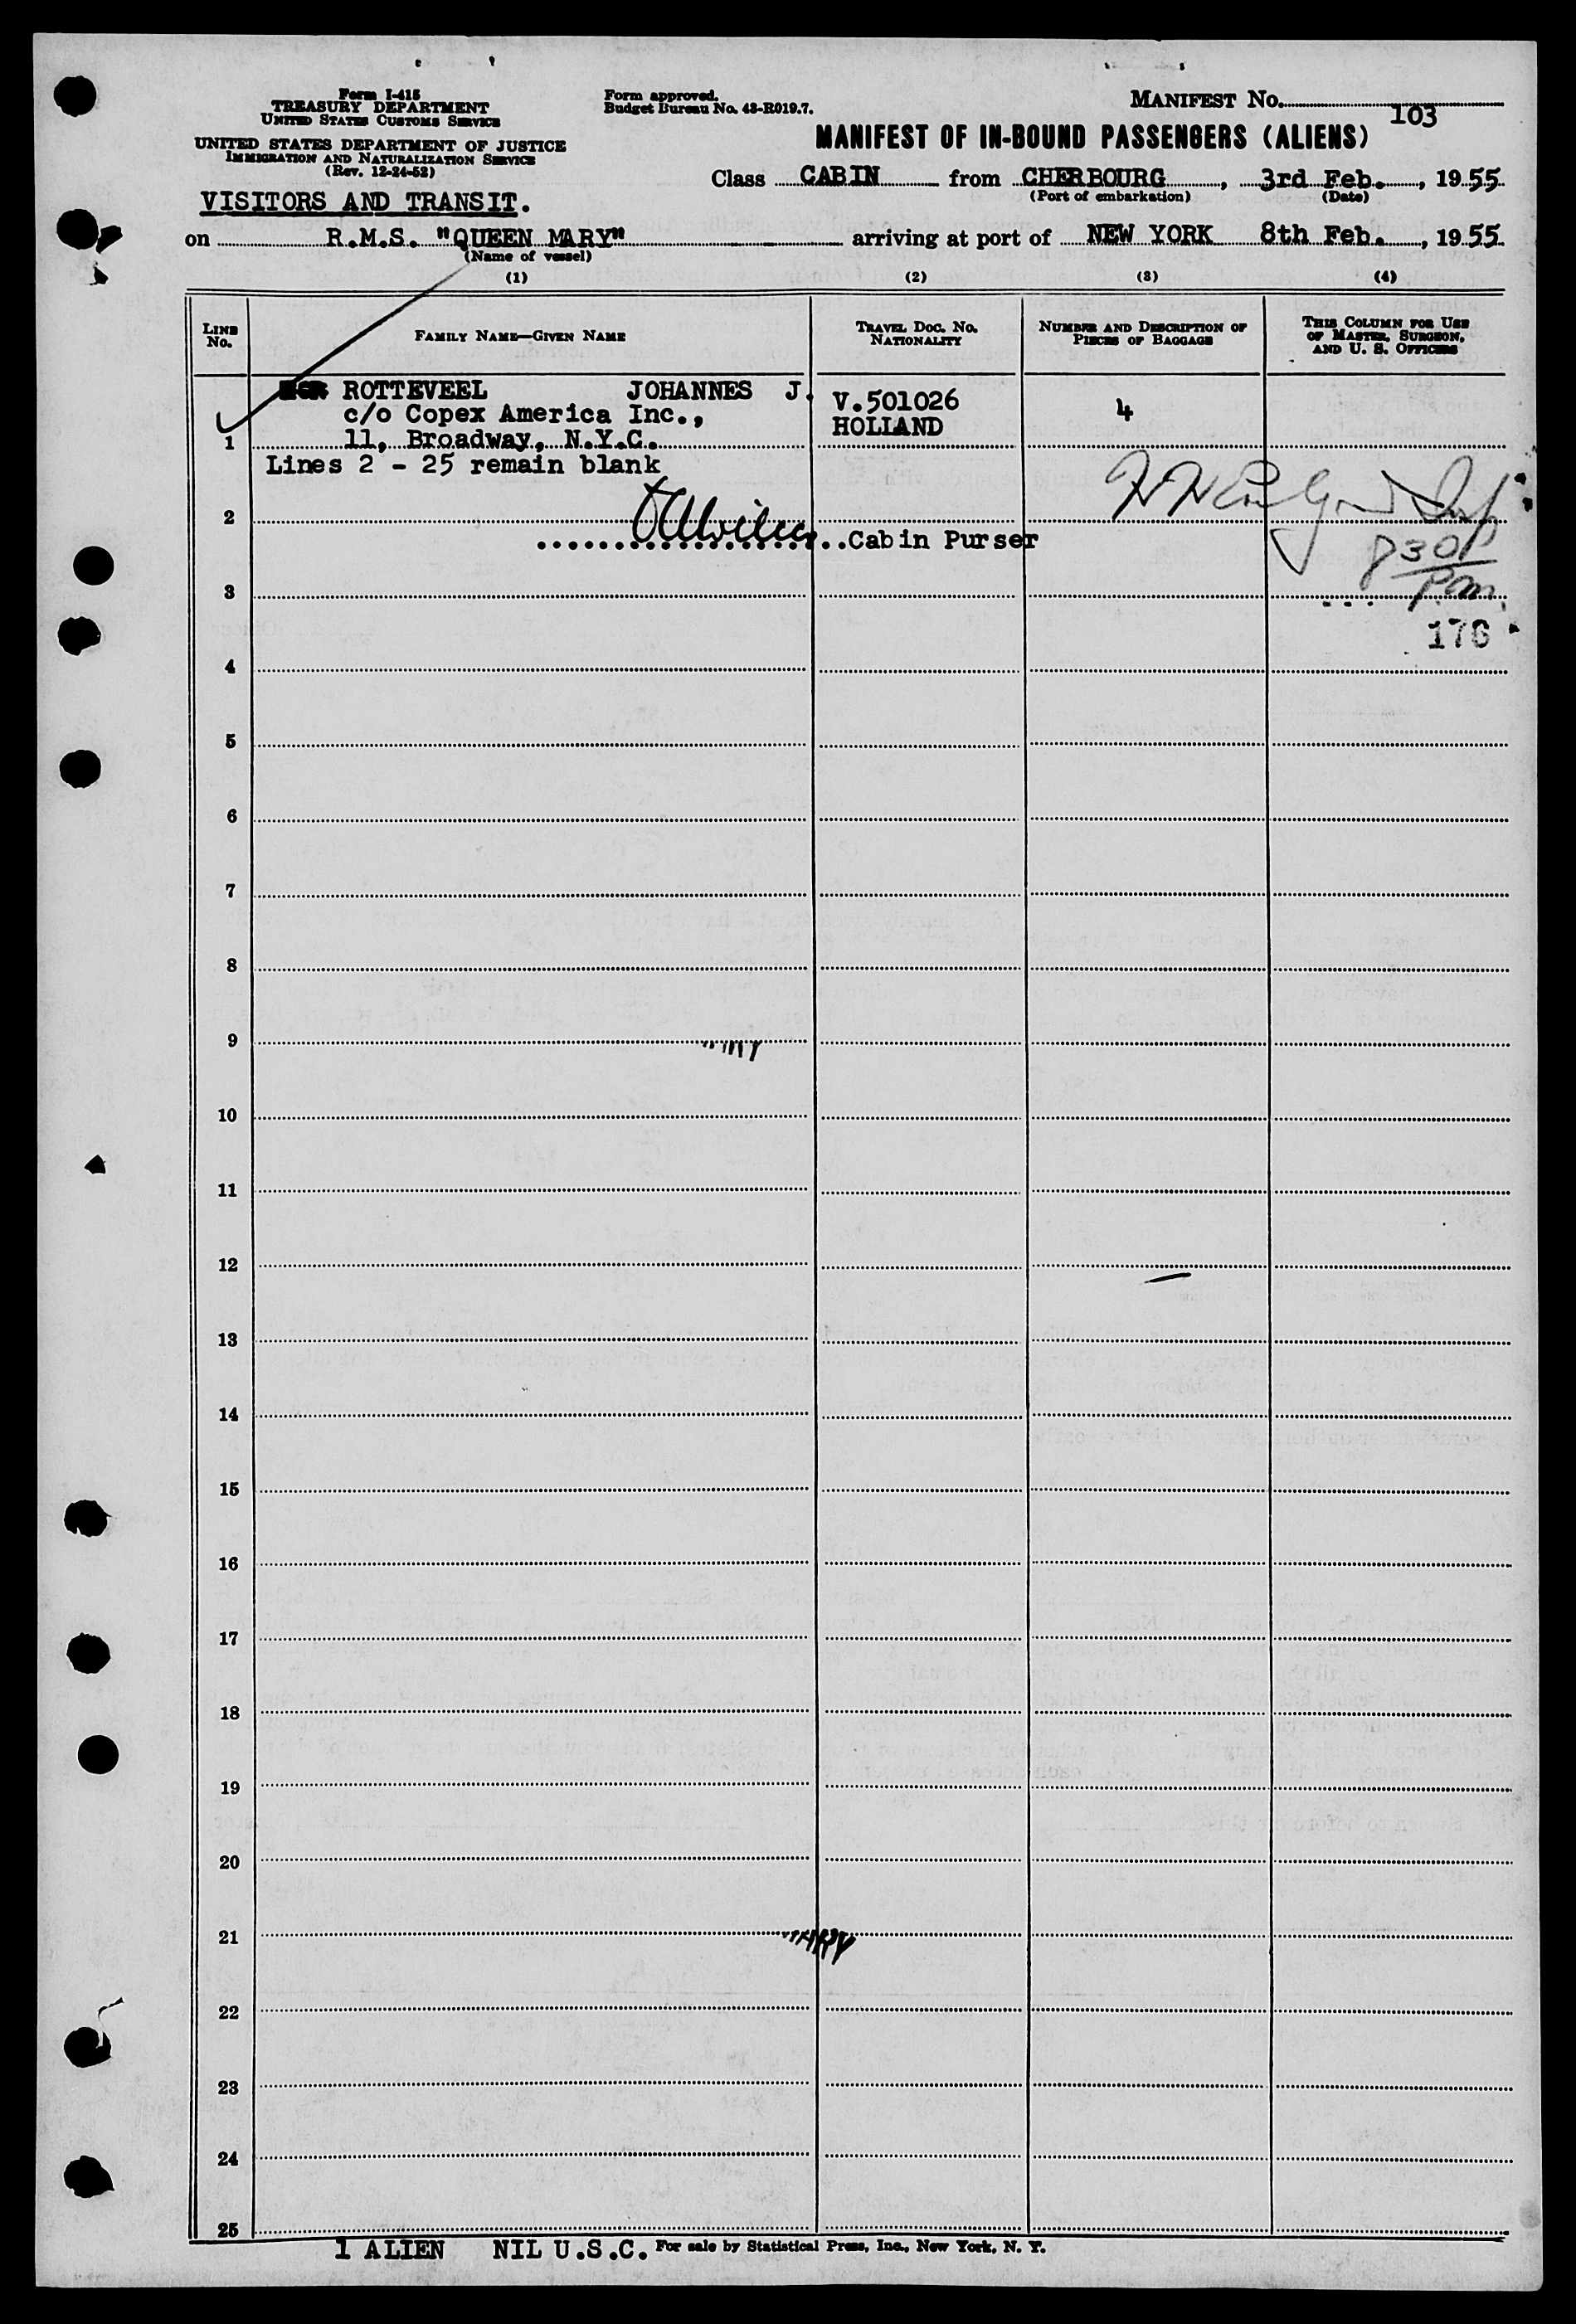 Form I-415
TREASURY DEPARTMENT
UNITED STATES CUSTOMS SERVICE
UNITED STATES DEPARTMENT OF JUSTICE
IMMIGRATION AND NATURALIZATION SERVICE
(Rev. 12-24-52)
Form approved.
Budget Bureau No. 43-R019.7.
MANIFEST NO. 103
MANIFEST OF IN-BOUND PASSENGERS (ALIENS)
Class CABIN from CHERBOURG, 3rd Feb., 1955
(Port of embarkation) (Date)
VISITORS AND TRANSIT.
on R.M.S. "QUEEN MARY" arriving at port of NEW YORK 8th Feb., 1955
(Name of vessel)
(1) (2) (3) (4)
LINE NO.
FAMILY NAME—GIVEN NAME
TRAVEL DOC. NO.
NATIONALITY
NUMBER AND DESCRIPTION OF
PIECES OF BAGGAGE
THIS COLUMN FOR USE
OF MASTER, SURGEON,
AND U. S. OFFICERS
ROTTEVEEL JOHANNES J. V.501026 4
c/o Copex America Inc., HOLLAND
1 11, Broadway, N.Y.C.
Lines 2 - 25 remain blank
2
Cabin Purser
830P
3 P.m.
176
4
5
6
7
8
9
10
11
12
13
14
15
16
17
18
19
20
21
22
23
24
25
1 ALIEN NIL U.S.C. For sale by Statistical Press, Inc., New York, N. Y.